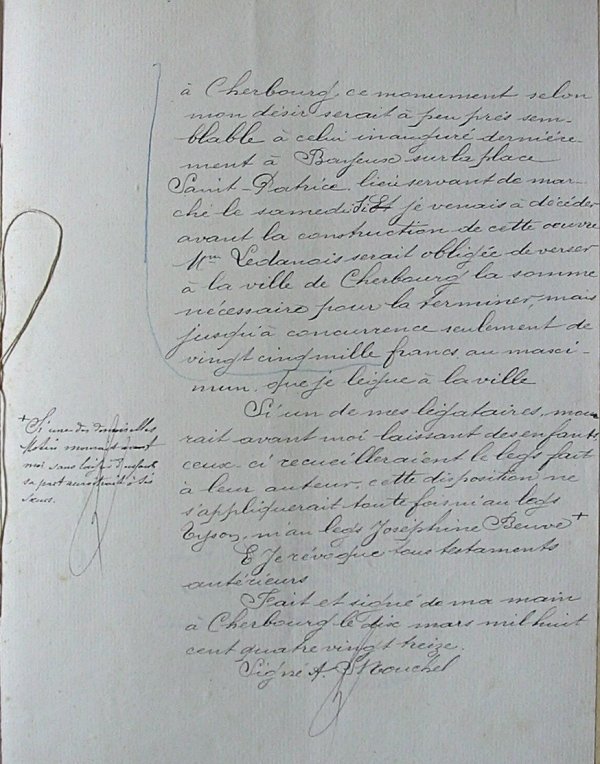 à Cherbourg, ce monument selon
mon désir serait à peu près sem-
blable à celui inauguré dernière-
ment à Bayeux sur la place
Saint-Patrice, lieu servant de mar-
ché le samedi. Si Et je venais à décéder
avant la construction de cette oeuvre
Mme Ledanois serait obligée de verser
à la ville de Cherbourg la somme
nécessaire pour la terminer, mais
jusqu'à concurrence seulement de
vingt cinq mille francs au maxi-
mum, que je lègue à la ville
Si un de mes légataires, mou
rait avant moi laissant des enfants
ceux-ci recueilleraient le legs fait
à leur auteur, cette disposition ne
s'appliquerait toute fois ni au legs
Tyson, ni au legs Joséphine Beuve +
E Je révoque tous testaments
antérieurs
Fait et signé de ma main
à Cherbourg le dix mars mil huit
cent quatre vingt treize.
Signé A. Mouchel
+ Si une des demoiselles
mourait avant
moi sans laisser d'enfant
sa part à ses
soeurs.